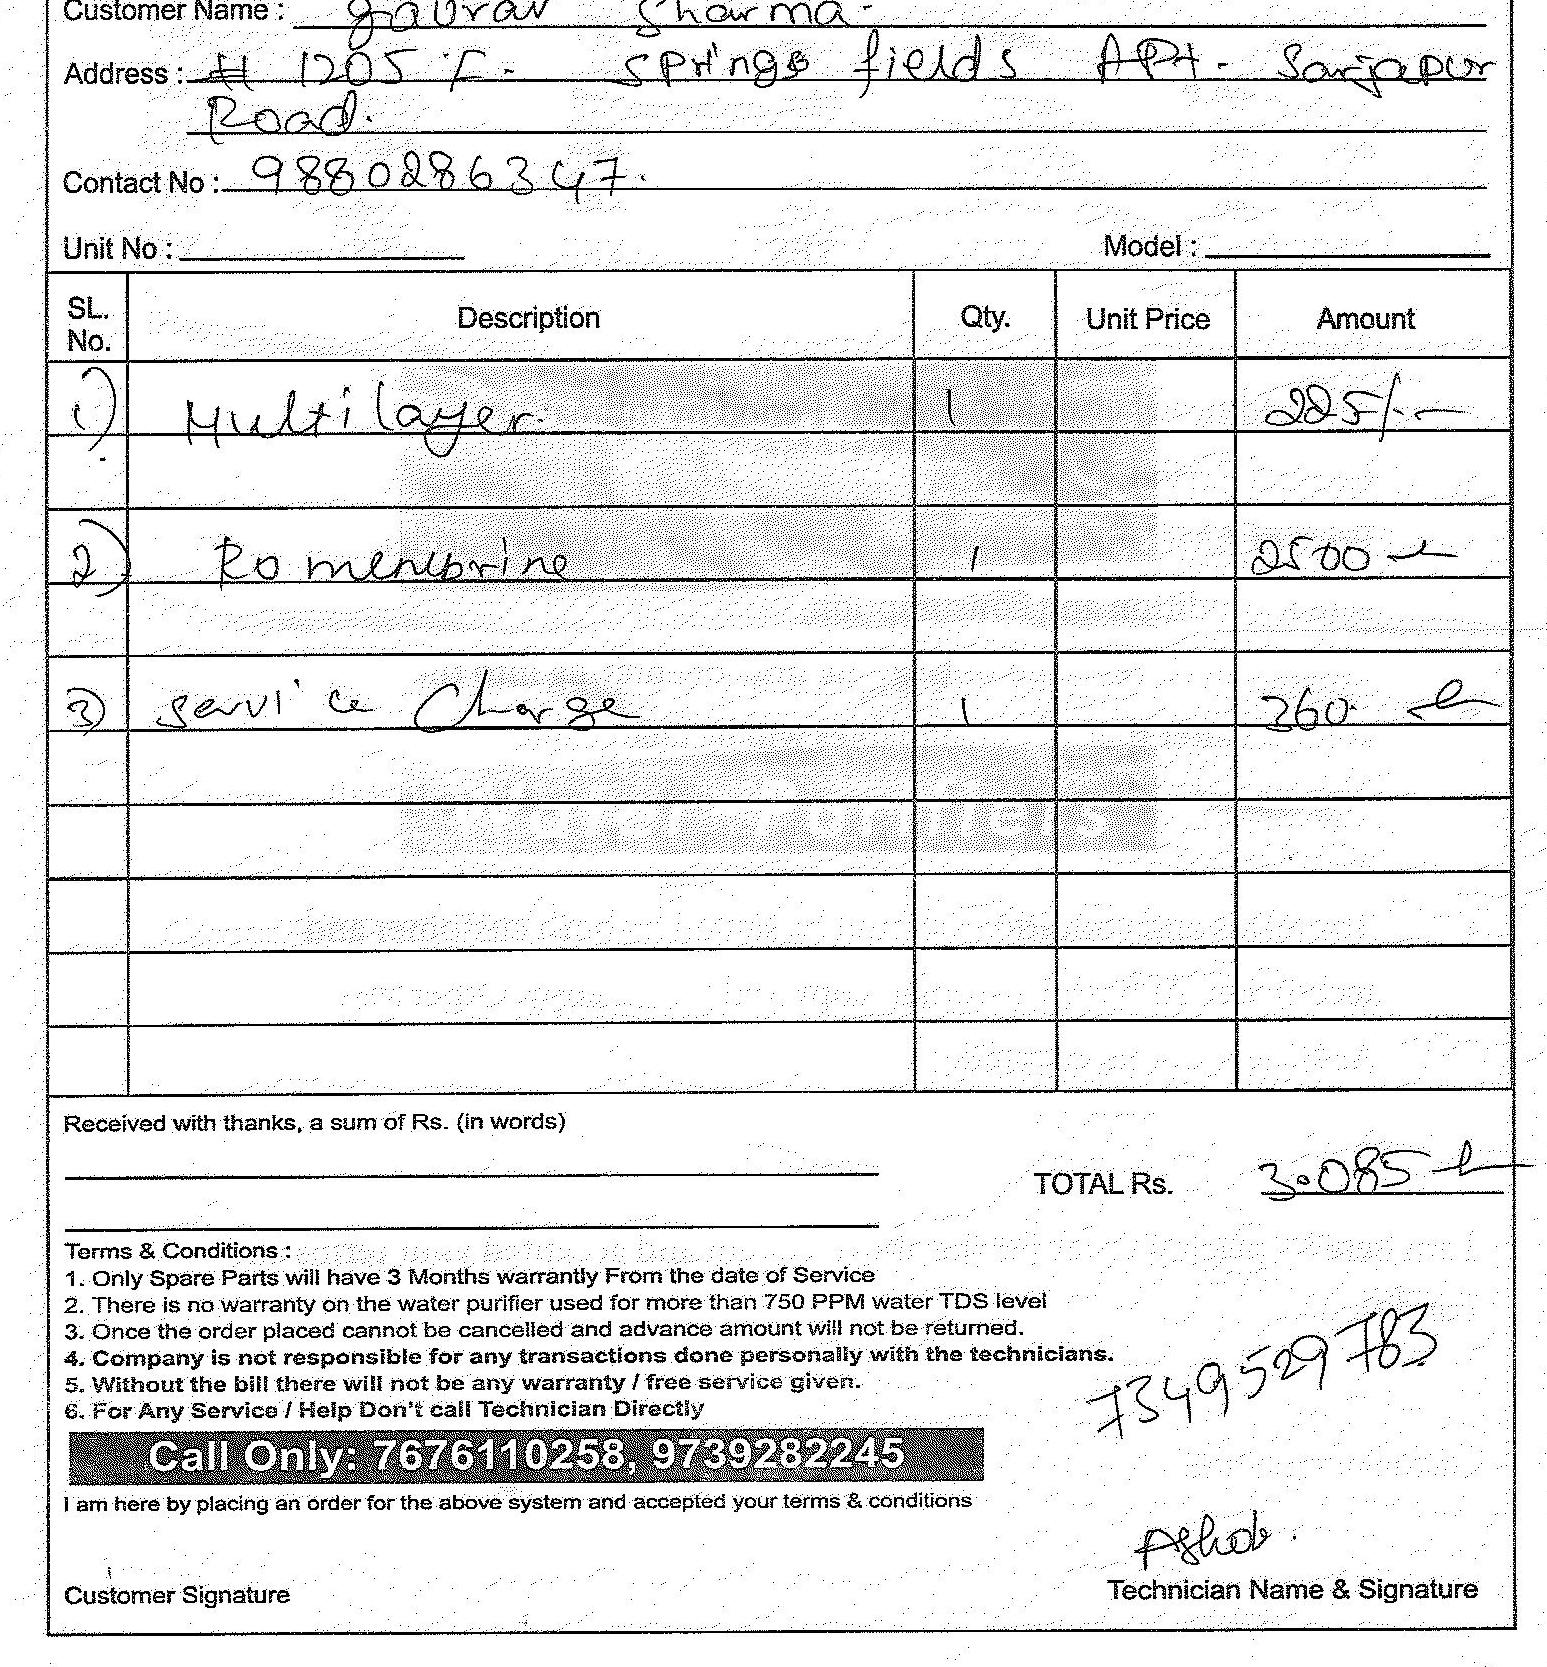 Customer Name : Gaurav Sharma.
Address : # 1205 F. Springs fields APt. Sarjapur
Road.
Contact No : 9880286347.
Unit No :
Model :
SL. No. Description Qty. Unit Price Amount
1) Multilayer. 1 225/-
2) Ro menebrine 1 2500
3) Service Charge 1 360
Received with thanks, a sum of Rs. (in words)
TOTAL Rs. 3.085
Terms & Conditions :
1. Only Spare Parts will have 3 Months warrantly From the date of Service
2. There is no warranty on the water purifier used for more than 750 PPM water TDS level
3. Once the order placed cannot be cancelled and advance amount will not be returned.
4. Company is not responsible for any transactions done personally with the technicians.
5. Without the bill there will not be any warranty / free service given.
6. For Any Service / Help Don't call Technician Directly
7349529783
Call Only: 7676110258, 9739282245
I am here by placing an order for the above system and accepted your terms & conditions
Customer Signature
Technician Name & Signature